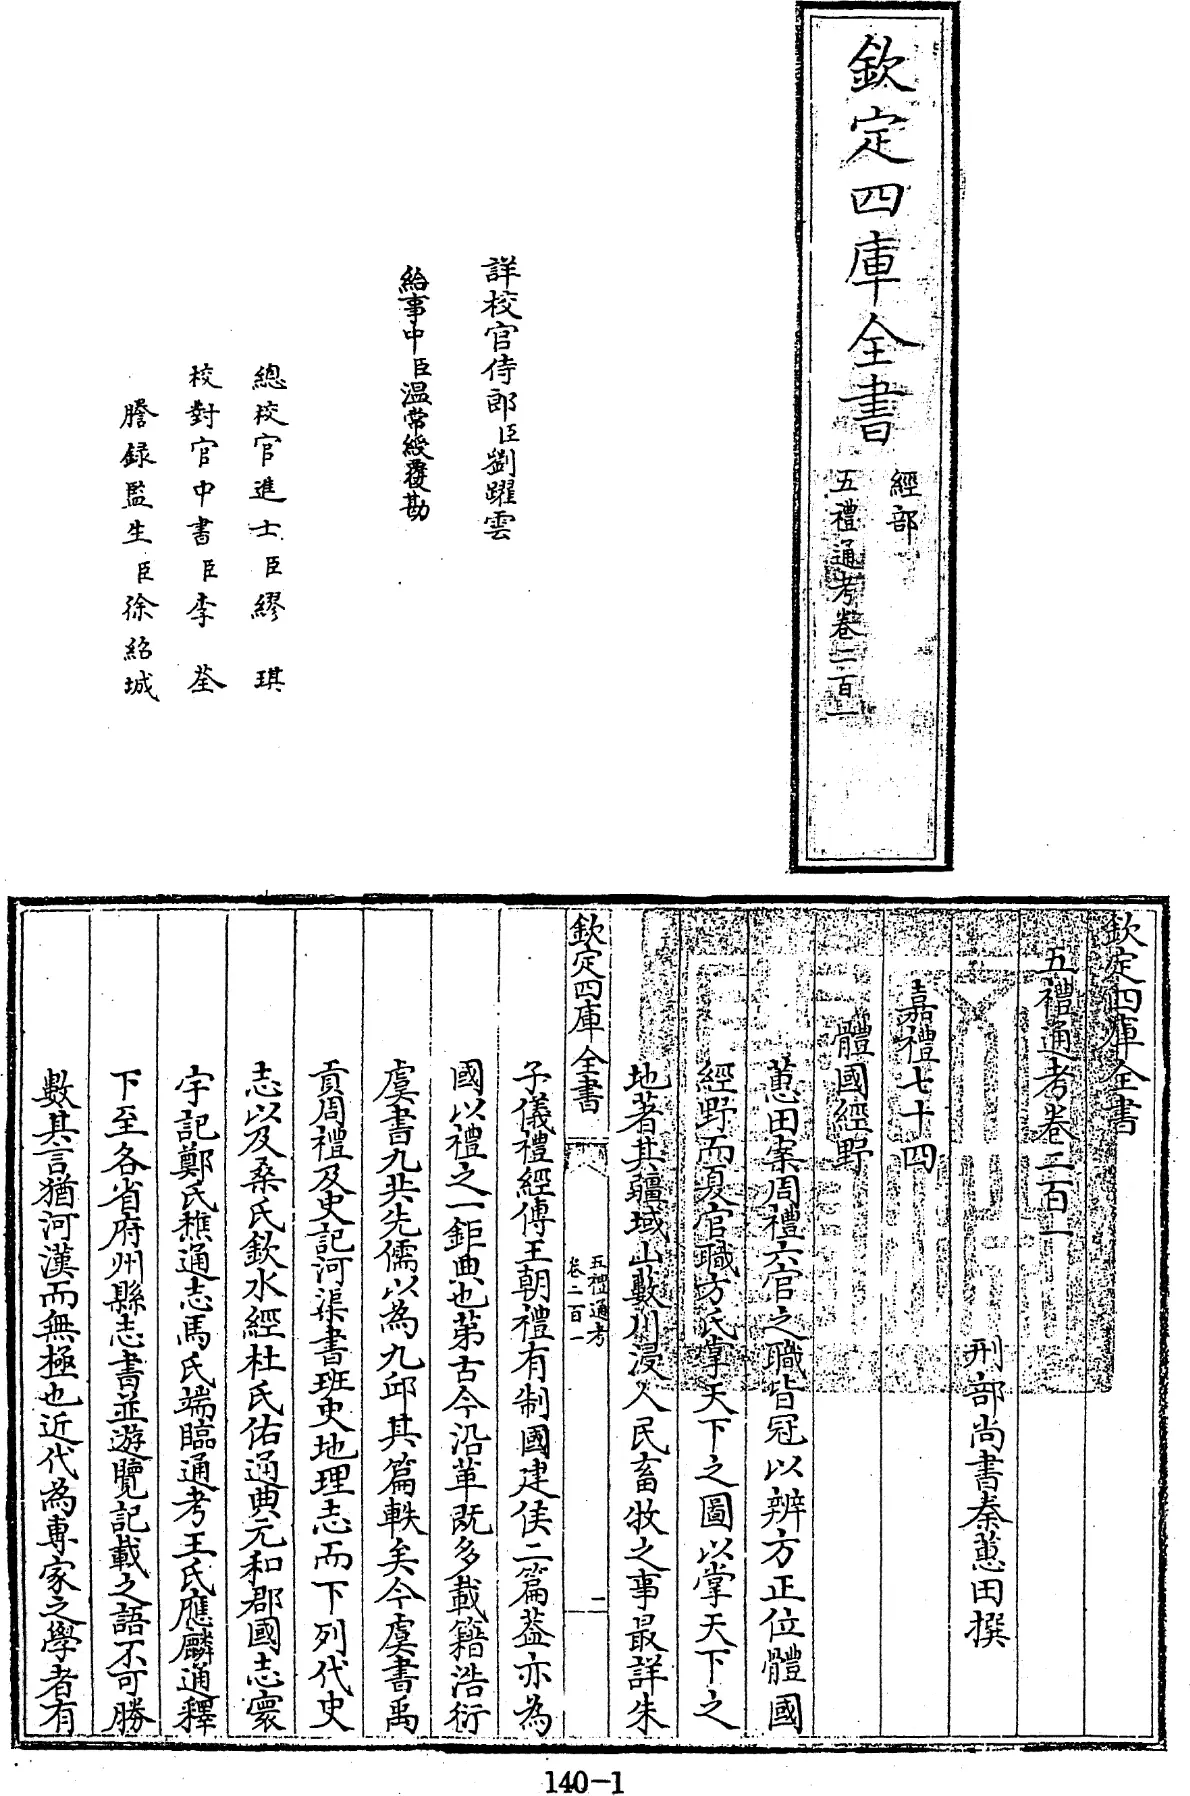 欽定四庫全書
經部
五禮通考卷二百一
詳校官侍郎臣劉躍雲
給事中臣溫常綬覆勘
總校官進士臣繆琪
校對官中書臣李荃
謄錄監生臣徐紹城
欽定四庫全書
五禮通考卷二百一
刑部尚書秦蕙田撰
嘉禮七十四
體國經野
蕙田案周禮六官之職皆冠以辨方正位體國
經野而夏官職方氏掌天下之圖以掌天下之
地著其疆域山藪川浸人民畜牧之事最詳朱
欽定四庫全書
五禮通考
卷二百一
二
子儀禮經傳王朝禮有制國建侯二篇蓋亦為
國以禮之一鉅典也第古今沿革既多載籍浩衍
虞書九共先儒以為九邱其篇軼矣今虞書禹
貢周禮及史記河渠書班史地理志而下列代史
志以及桑氏欽水經杜氏佑通典元和郡國志寰
宇記鄭氏樵通志馬氏端臨通考王氏應麟通釋
下至各省府州縣志書並遊覽記載之語不可勝
數其言猶河漢而無極也近代為專家之學者有
140-1